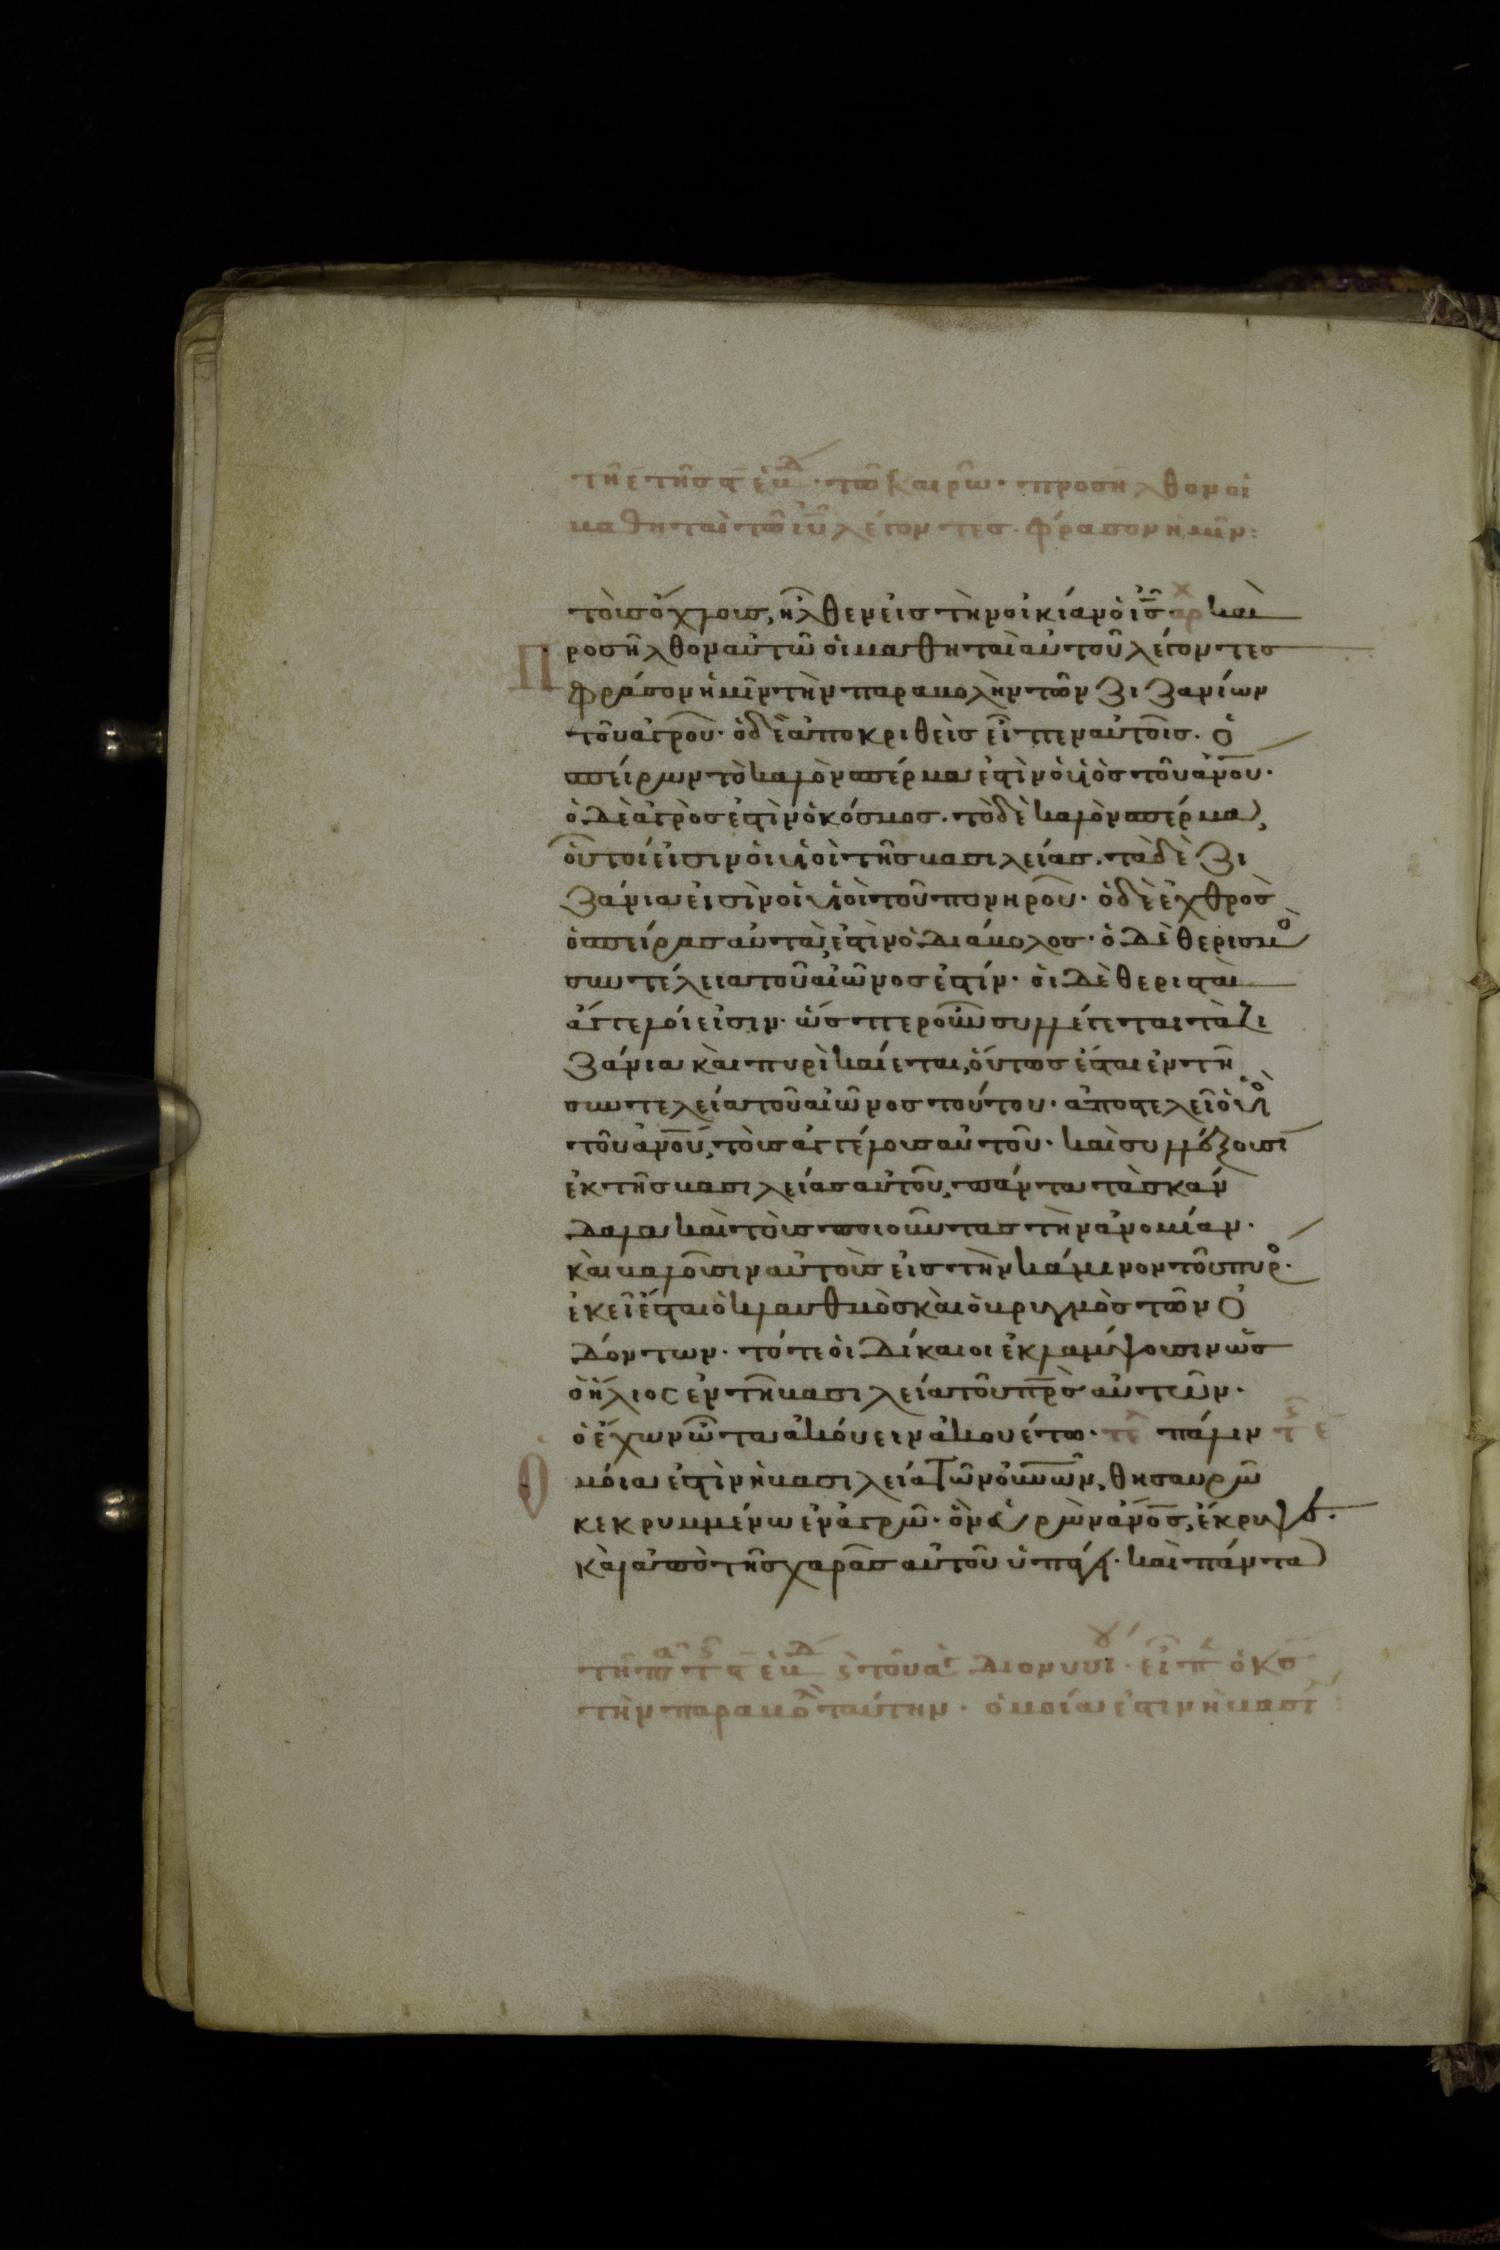 τῆ ε τῆς ϛ ἑβδ. τῶ καιρῶ. προσῆλθον οἱ
μαθηταὶ τῶ ἰῦ λέγοντες. φράσον ἡμῖν:
τοὺς ὄχλους, ἦλθεν εἰς τὴν οἰκίαν ὁ ἰς̅ αρχ καὶ
Προσῆλθον αὐτῶ οἱ μαθηταὶ αὐτοῦ λέγοντες
φράσον ἡμῖν τὴν παραβολὴν τῶν ζιζανίων
τοῦ ἀγροῦ. ὁ δὲ ἀποκριθεὶς εἶπεν αὐτοῖς. ὁ
σπείρων τὸ καλὸν σπέρμα ἐστὶν ὁ υἱὸς τοῦ ἀν̅ου.
ὁ δὲ ἀγρὸς ἐστὶν ὁ κόσμος. τὸ δὲ καλὸν σπέρμα,
οὗτοί εἰσιν οἱ υἱοὶ τῆς βασιλείας. τὰ δὲ ζι
ζάνια εἰσὶν οἱ υἱοὶ τοῦ πονηροῦ. ὁ δὲ ἐχθρὸς
ὁ σπείρας αὐτὰ, ἐστὶν ὁ διάβολος. ὁ δὲ θερισμὸ
συντέλεια τοῦ αἰῶνος ἐστίν. οἱ δὲ θερισταὶ
ἄγγελοί εἰσιν. ὥσπερ οὖν συλλέγεται τὰ ζι
ζάνια καὶ πυρὶ καίεται, οὕτως ἔσται ἐν τῆ
συντελεία τοῦ αἰῶνος τούτου. ἀποστελεῖ ὁ υἱὸ
τοῦ ἀν̅ου, τοὺς ἀγγέλους αὐτοῦ. καὶ συλλέξουσι
ἐκ τῆς βασιλείας αὐτοῦ, πάντα τὰ σκάν
δαλα καὶ τοὺς ποιοῦντας τὴν ἀνομίαν.
καὶ βαλοῦσιν αὐτοὺς εἰς τὴν κάμινον τοῦ πυρὸ.
ἐκεῖ ἔσται ὁ κλαυθμὸς καὶ ὁ βρυγμὸς τῶν ὀ
δόντων. τότε οἱ δίκαιοι ἐκλάμψουσιν ὡς
ὁ ἥλιος ἐν τῆ βασιλεία τοῦ πρ̅ς αὐτῶν.
ὁ ἔχων ὦτα ἀκούειν ἀκουέτω. τε πάλιν
Ὁμοία ἐστὶν ἡ βασιλεία τῶν οὐν̅ων, θησαυρῶ
κεκρυμμένω ἐν ἀγρῶ. ὃν εὑρὼν ἀν̅ος, ἔκρυψε.
καὶ ἀπὸ τῆς χαρᾶς αὐτοῦ ὑπάγει. καὶ πάντα
τοῦ ἁγ διονυσι. εἶπ ὁ κς̅
τὴν παραβολ ταύτην. ὁμοία ἐστιν ἡ βασι